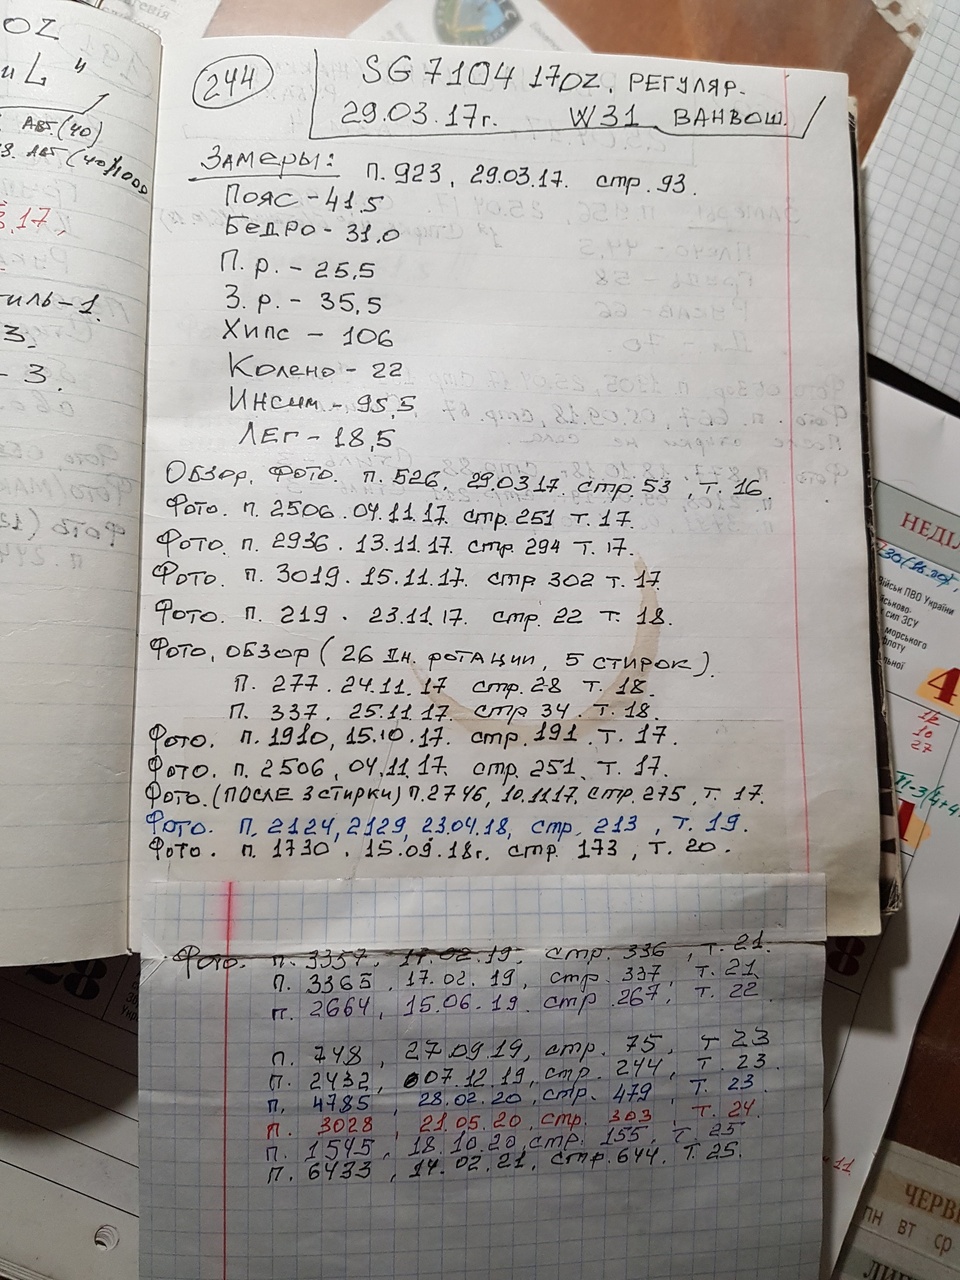 244
SG 7104 17OZ. РЕГУЛЯР.
29.03.17г. W31 ВАНВОШ.
ЗАМЕРЫ: П. 923, 29.03.17. стр. 93.
Пояс - 41,5
Бедро - 31,0
П.р. - 25,5
З.р. - 35,5
Хипс - 106
Колено - 22
Инсим - 95,5
ЛЕГ - 18,5
Обзор, Фото. п. 526, 29.03.17. стр. 53, т. 16.
Фото. п. 2506. 04.11.17. стр. 251 т. 17.
Фото. п. 2936. 13.11.17. стр. 294 т. 17.
Фото. п. 3019. 15.11.17. стр 302 т. 17
Фото. п. 219. 23.11.17. стр. 22 т. 18.
Фото, ОБЗОР (26 Дн. ротации, 5 СТИРОК).
П. 277. 24.11.17 стр. 28 т. 18.
П. 337. 25.11.17. стр 34. т. 18.
Фото. п. 1910, 15.10.17. стр. 191. т. 17.
Фото. п. 2506, 04.11.17. стр. 251. т. 17.
Фото. (ПОСЛЕ 3 СТИРКИ) П. 2746, 10.11.17. стр. 275, т. 17.
Фото. П. 2124, 2129, 23.04.18, стр. 213, т. 19.
Фото. п. 1730. 15.09.18г. стр. 173, т. 20.
Фото. п. 3357, 17.02.19. стр. 336, т. 21.
п. 3365, 17.02.19, стр. 337, т. 21
п. 2664, 15.06.19. стр. 267, т. 22
п. 748, 27.09.19, стр. 75, т 23
п. 2432, 07.12.19, стр. 244, т. 23.
п. 4785, 28.02.20, стр. 479, т. 23
п. 3028, 21.05.20, стр. 303, т. 24.
п. 1545, 18.10.20, стр. 155, т. 25
п. 6433, 14.02.21, стр. 644, т. 25.
OZ
L"
АВТ (40)
.17,
иль - 1.
3.
- 3.
НЕДІ
Військ ПВО України
сил ЗСУ
морського
флоту
4
12
10
27
28
ЧЕРВ
ПН ВТ СР